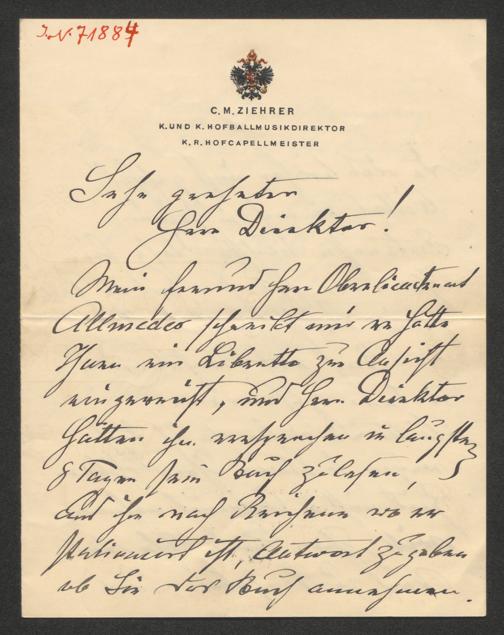 I.N. 71884
C. M. ZIEHRER
K. UND K. HOFBALLMUSIKDIREKTOR
K. R. HOFCAPELLMEISTER
Sehr geehrter
Herr Direktor!
Mein Freund Herr Oberlieutenant
schreibt mir er hätte
Ihnen ein Libretto zur Ansicht
eingereicht, und Herr Direktor
hätten ihm versprochen in längstens
8 Tagen sein Buch zu lesen,
und ihm nach wo er
stationiert ist, Antwort zu geben
ob Sie das Buch annehmen.